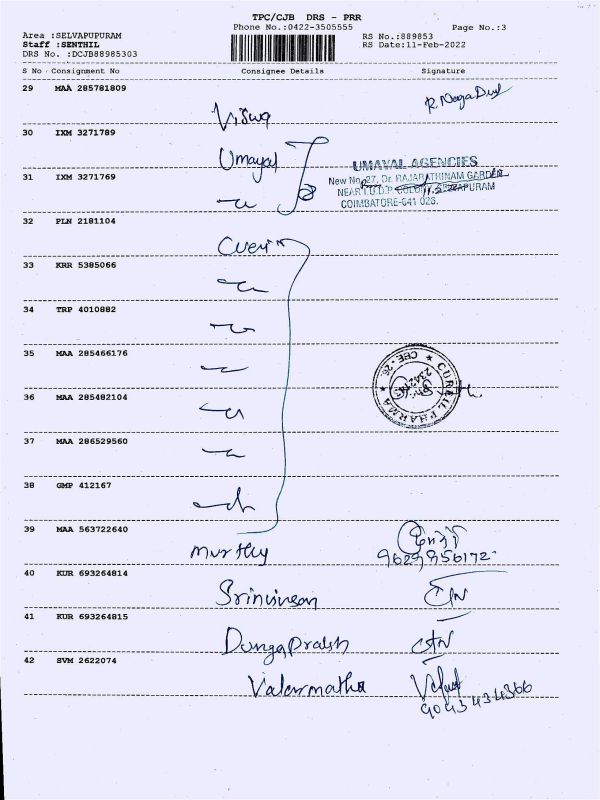 TPC/CJB DRS - PRR
Phone No.:0422-3505555
Page No.:3
Area :SELVAPUPURAM
RS No.:889853
Staff :SENTHIL
RS Date:11-Feb-2022
DRS No. :DCJB88985303
S No Consignment No Consignee Details Signature
29 MAA 285781809
Viswa
R. NagaDevi
30 IXM 3271789
Umayal
UMAYAL AGENCIES
New No.27, Dr. RAJARATHINAM GARDEN
NEAR T.U.D.P. COLONY, SELVAPURAM
COIMBATORE-641 026.
31 IXM 3271769
32 PLN 2181104
33 KRR 5385066
34 TRP 4010882
35 MAA 285466176
CURE PHARMA ★ CBE - 26. ★
36 MAA 285482104
37 MAA 286529560
38 GMP 412167
39 MAA 563722640
Murthy
9629956172
40 KUR 693264814
Srinivasan
41 KUR 693264815
DurgaPrakash
42 SVM 2622074
Valarmatha
9043434366